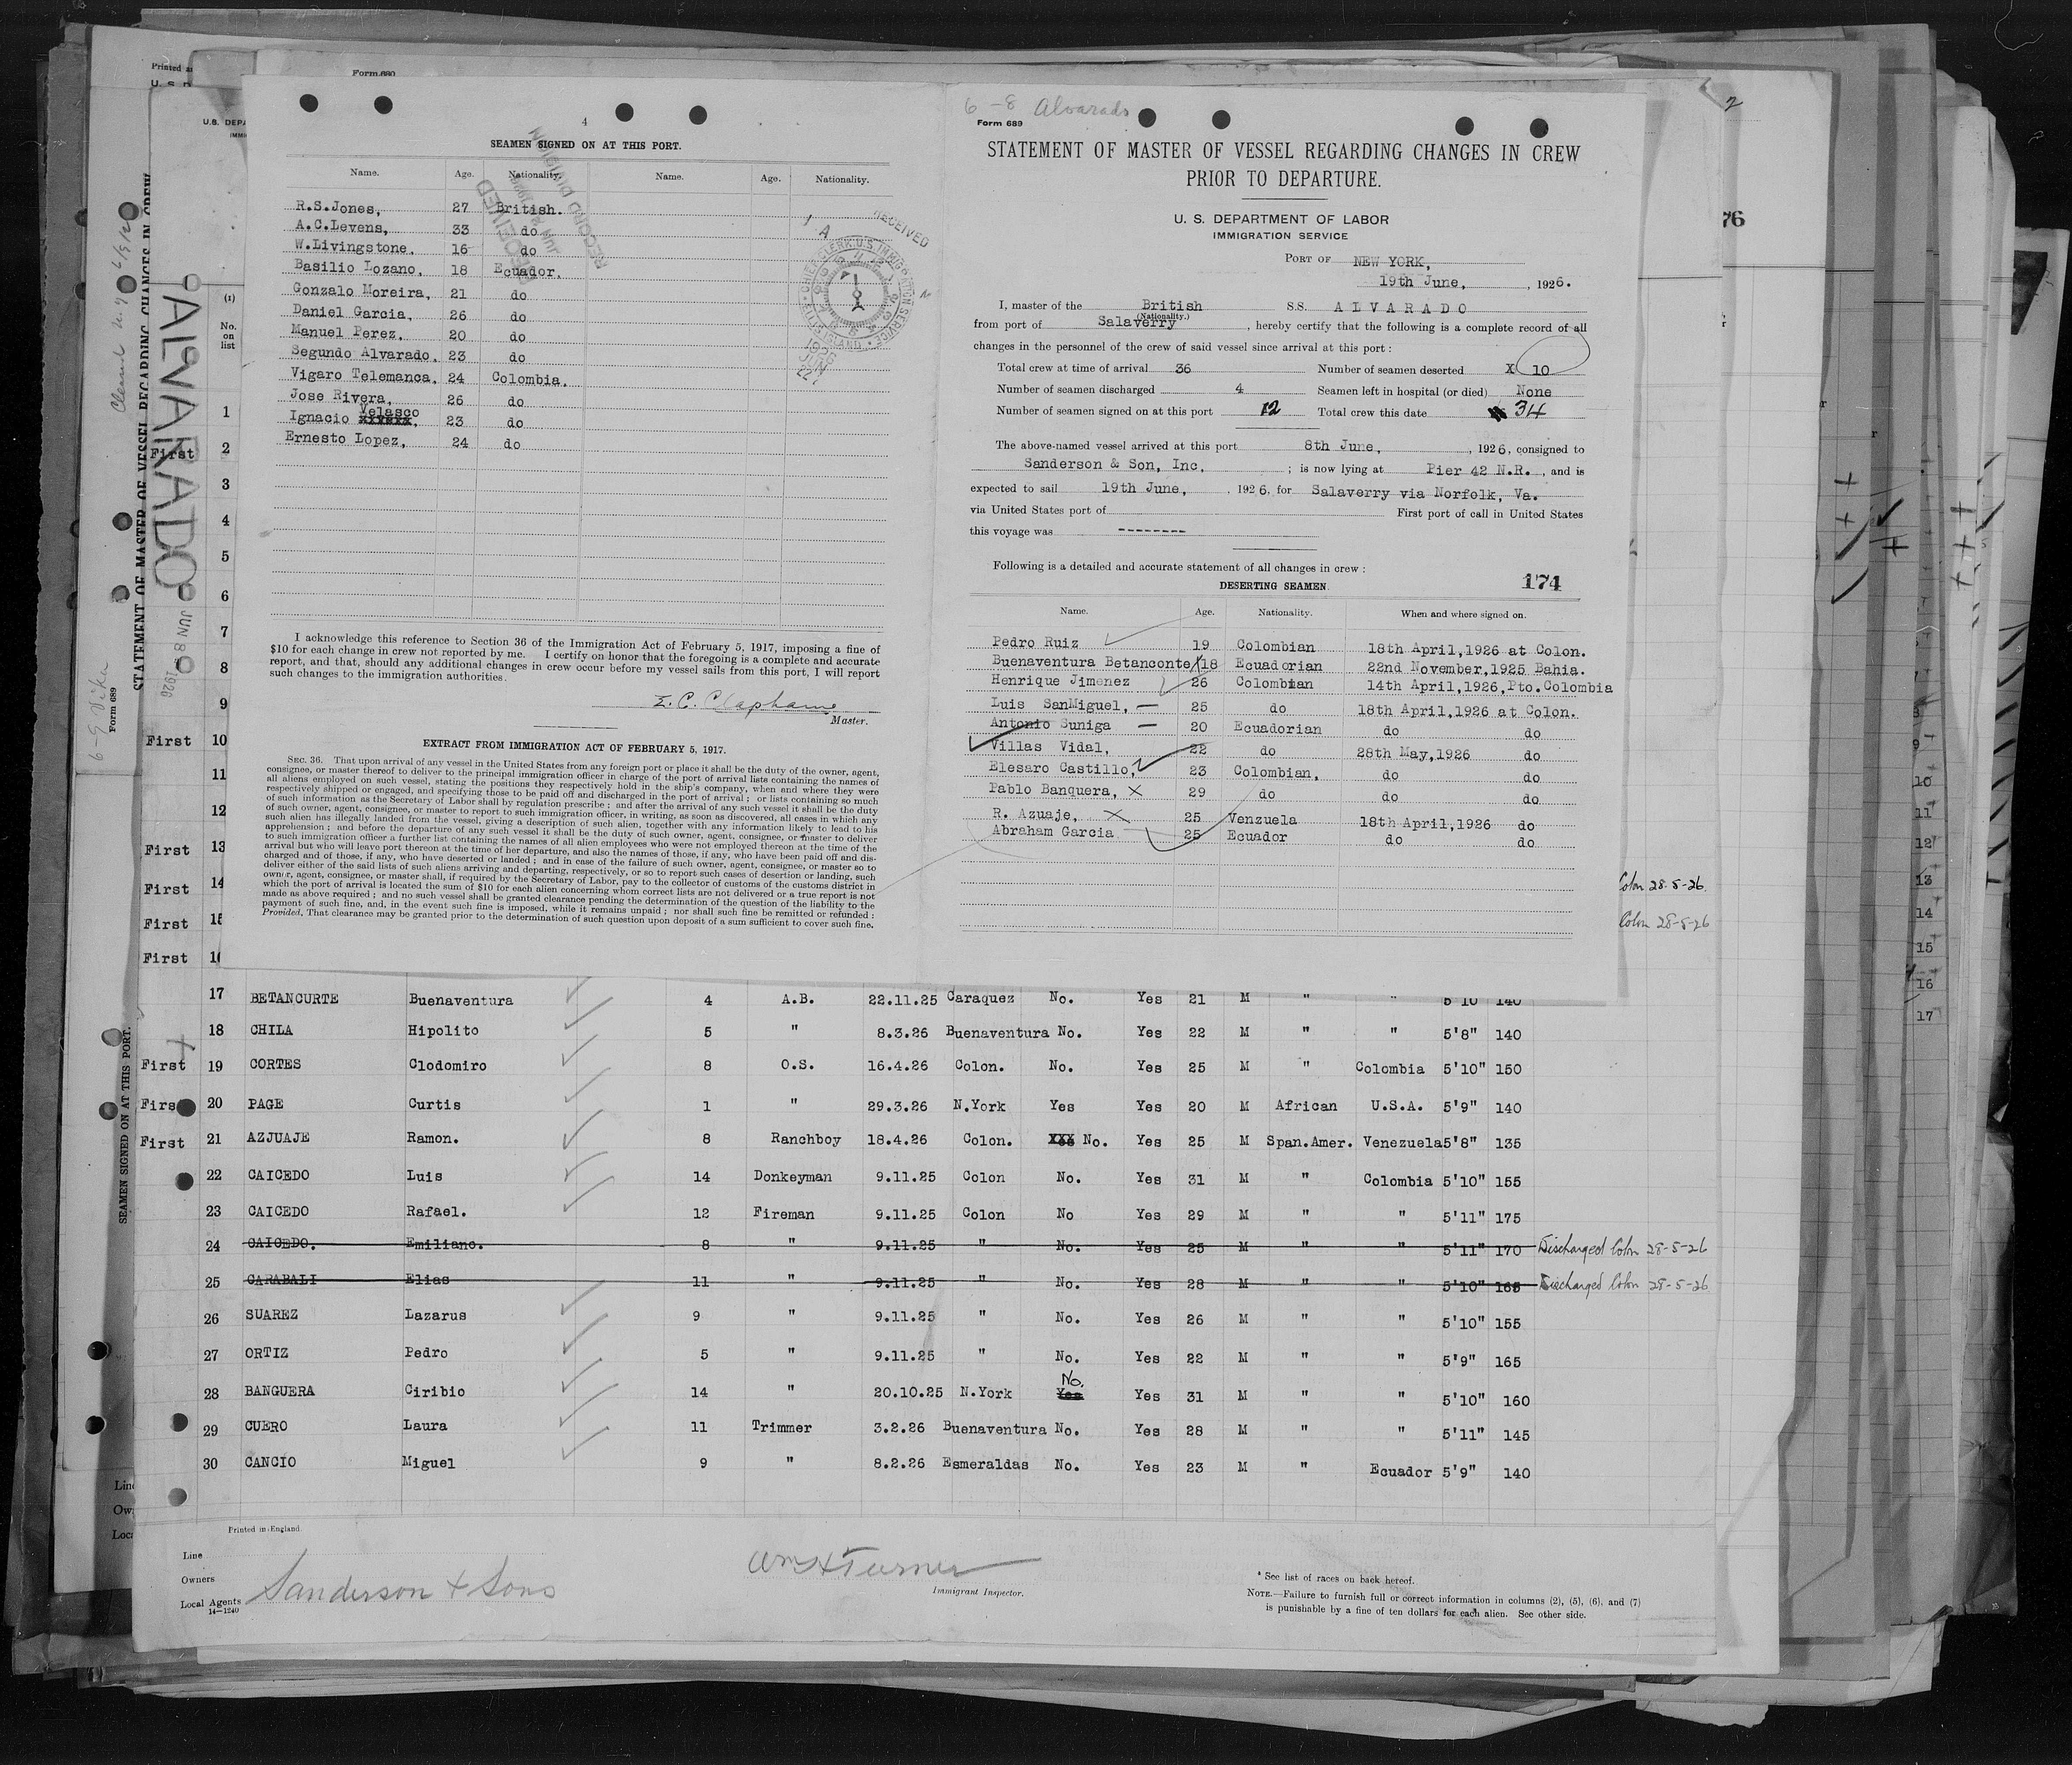 4
SEAMEN SIGNED ON AT THIS PORT.
Name. Age. Nationality. Name. Age. Nationality.
R.S.Jones, 27 British.
A.C.Levens, 33 do
W.Livingstone. 16 do
Basilio Lozano, 18 Ecuador.
Gonzalo Moreira, 21 do
Daniel Garcia, 26 do
Manuel Perez. 20 do
Segundo Alvarado. 23 do
Vigaro Telemanca. 24 Colombia.
Jose Rivera, 26 do
Velasco
Ignacio 23 do
Ernesto Lopez, 24 do
I acknowledge this reference to Section 36 of the Immigration Act of February 5, 1917, imposing a fine of
$10 for each change in crew not reported by me. I certify on honor that the foregoing is a complete and accurate
report, and that, should any additional changes in crew occur before my vessel sails from this port, I will report
such changes to the immigration authorities.
E. C. Clapham
Master.
EXTRACT FROM IMMIGRATION ACT OF FEBRUARY 5, 1917.
SEC. 36. That upon arrival of any vessel in the United States from any foreign port or place it shall be the duty of the owner, agent,
consignee, or master thereof to deliver to the principal immigration officer in charge of the port of arrival lists containing the names of
all aliens employed on such vessel, stating the positions they respectively hold in the ship's company, when and where they were
respectively shipped or engaged, and specifying those to be paid off and discharged in the port of arrival; or lists containing so much
of such information as the Secretary of Labor shall by regulation prescribe; and after the arrival of any such vessel it shall be the duty
of such owner, agent, consignee, or master to report to such immigration officer, in writing, as soon as discovered, all cases in which any
such alien has illegally landed from the vessel, giving a description of such alien, together with any information likely to lead to his
apprehension; and before the departure of any such vessel it shall be the duty of such owner, agent, consignee, or master to deliver
to such immigration officer a further list containing the names of all alien employees who were not employed thereon at the time of the
arrival but who will leave port thereon at the time of her departure, and also the names of those, if any, who have been paid off and dis-
charged and of those, if any, who have deserted or landed; and in case of the failure of such owner, agent, consignee, or master so to
deliver either of the said lists of such aliens arriving and departing, respectively, or so to report such cases of desertion or landing, such
owner, agent, consignee, or master, shall, if required by the Secretary of Labor, pay to the collector of customs of the customs district in
which the port of arrival is located the sum of $10 for each alien concerning whom correct lists are not delivered or a true report is not
made as above required; and no such vessel shall be granted clearance pending the determination of the question of the liability to the
payment of such fine, and, in the event such fine is imposed, while it remains unpaid; nor shall such fine be remitted or refunded:
Provided, That clearance may be granted prior to the determination of such question upon deposit of a sum sufficient to cover such fine.
6-8 Alvarado
Form 689
STATEMENT OF MASTER OF VESSEL REGARDING CHANGES IN CREW
PRIOR TO DEPARTURE.
U. S. DEPARTMENT OF LABOR
IMMIGRATION SERVICE
PORT OF NEW YORK,
19th June, , 1926.
I, master of the British SS. ALVARADO
(Nationality.)
from port of Salaverry , hereby certify that the following is a complete record of all
changes in the personnel of the crew of said vessel since arrival at this port:
Total crew at time of arrival 36 Number of seamen deserted X 10
Number of seamen discharged 4 Seamen left in hospital (or died) None
Number of seamen signed on at this port 12 Total crew this date 34
The above-named vessel arrived at this port 8th June, , 1926, consigned to
Sanderson & Son, Inc. ; is now lying at Pier 42 N.R. , and is
expected to sail 19th June, , 1926, for Salaverry via Norfolk, Va.
via United States port of First port of call in United States
this voyage was --------
Following is a detailed and accurate statement of all changes in crew:
DESERTING SEAMEN. 174
Name. Age. Nationality. When and where signed on.
Pedro Ruiz 19 Colombian 18th April,1926 at Colon.
Buenaventura Betanconte 18 Ecuadorian 22nd November,1925 Bahia.
Henrique Jimenez 26 Colombian 14th April,1926,Pto.Colombia
Luis SanMiguel, 25 do 18th April,1926 at Colon.
Antonio Suniga 20 Ecuadorian do do
Villas Vidal, 22 do 28th May,1926 do
Elesaro Castillo, 23 Colombian, do do
Pablo Banquera, X 29 do do do
R. Azuaje, X 25 Venzuela 18th April,1926 do
Abraham Garcia 25 Ecuador do do
Printed
Form 680
2
76
U.S. DEPA
IMMI
ALVARADO
JUN 8 1926
STATEMENT OF MASTER OF VESSEL REGARDING CHANGES IN CREW
Form 689
SEAMEN SIGNED ON AT THIS PORT.
(1)
No.
on
list
1
First 2
3
4
5
6
7
8
9
First 10
11
12
First 13
First 14 Colon 28-5-26.
First 15 Colon 28-5-26
First
17 BETANCURTE Buenaventura 4 A.B. 22.11.25 Caraquez No. Yes 21 M " " 5'10 140
18 CHILA Hipolito 5 " 8.3.26 Buenaventura No. Yes 22 M " " 5'8" 140
First 19 CORTES Clodomiro 8 O.S. 16.4.26 Colon. No. Yes 25 M " Colombia 5'10" 150
First 20 PAGE Curtis 1 " 29.3.26 N.York Yes Yes 20 M African U.S.A. 5'9" 140
First 21 AZJUAJE Ramon. 8 Ranchboy 18.4.26 Colon. No. Yes 25 M Span.Amer. Venezuela 5'8" 135
22 CAICEDO Luis 14 Donkeyman 9.11.25 Colon No. Yes 31 M " Colombia 5'10" 155
23 CAICEDO Rafael. 12 Fireman 9.11.25 Colon No Yes 29 M " " 5'11" 175
24 CAICEDO. Emiliano. 8 " 9.11.25 " No. Yes 25 M " " 5'11" 170 Discharged Colon 28-5-26
25 CARABALI Elias 11 " 9.11.25 " No. Yes 28 M " " 5'10" 165 Discharged Colon 28-5-26.
26 SUAREZ Lazarus 9 " 9.11.25 " No. Yes 26 M " " 5'10" 155
27 ORTIZ Pedro 5 " 9.11.25 " No. Yes 22 M " " 5'9" 165
28 BANGUERA Ciribio 14 " 20.10.25 N.York Yes No. Yes 31 M " " 5'10" 160
29 CUERO Laura 11 Trimmer 3.2.26 Buenaventura No. Yes 28 M " " 5'11" 145
30 CANCIO Miguel 9 " 8.2.26 Esmeraldas No. Yes 23 M " Ecuador 5'9" 140
Printed in England.
Line
Owners
Local Agents Sanderson & Sons
14-1240
Wm H Turner
Immigrant Inspector.
* See list of races on back hereof.
NOTE.—Failure to furnish full or correct information in columns (2), (5), (6), and (7)
is punishable by a fine of ten dollars for each alien. See other side.
8
9
10
11
12
13
14
15
16
17